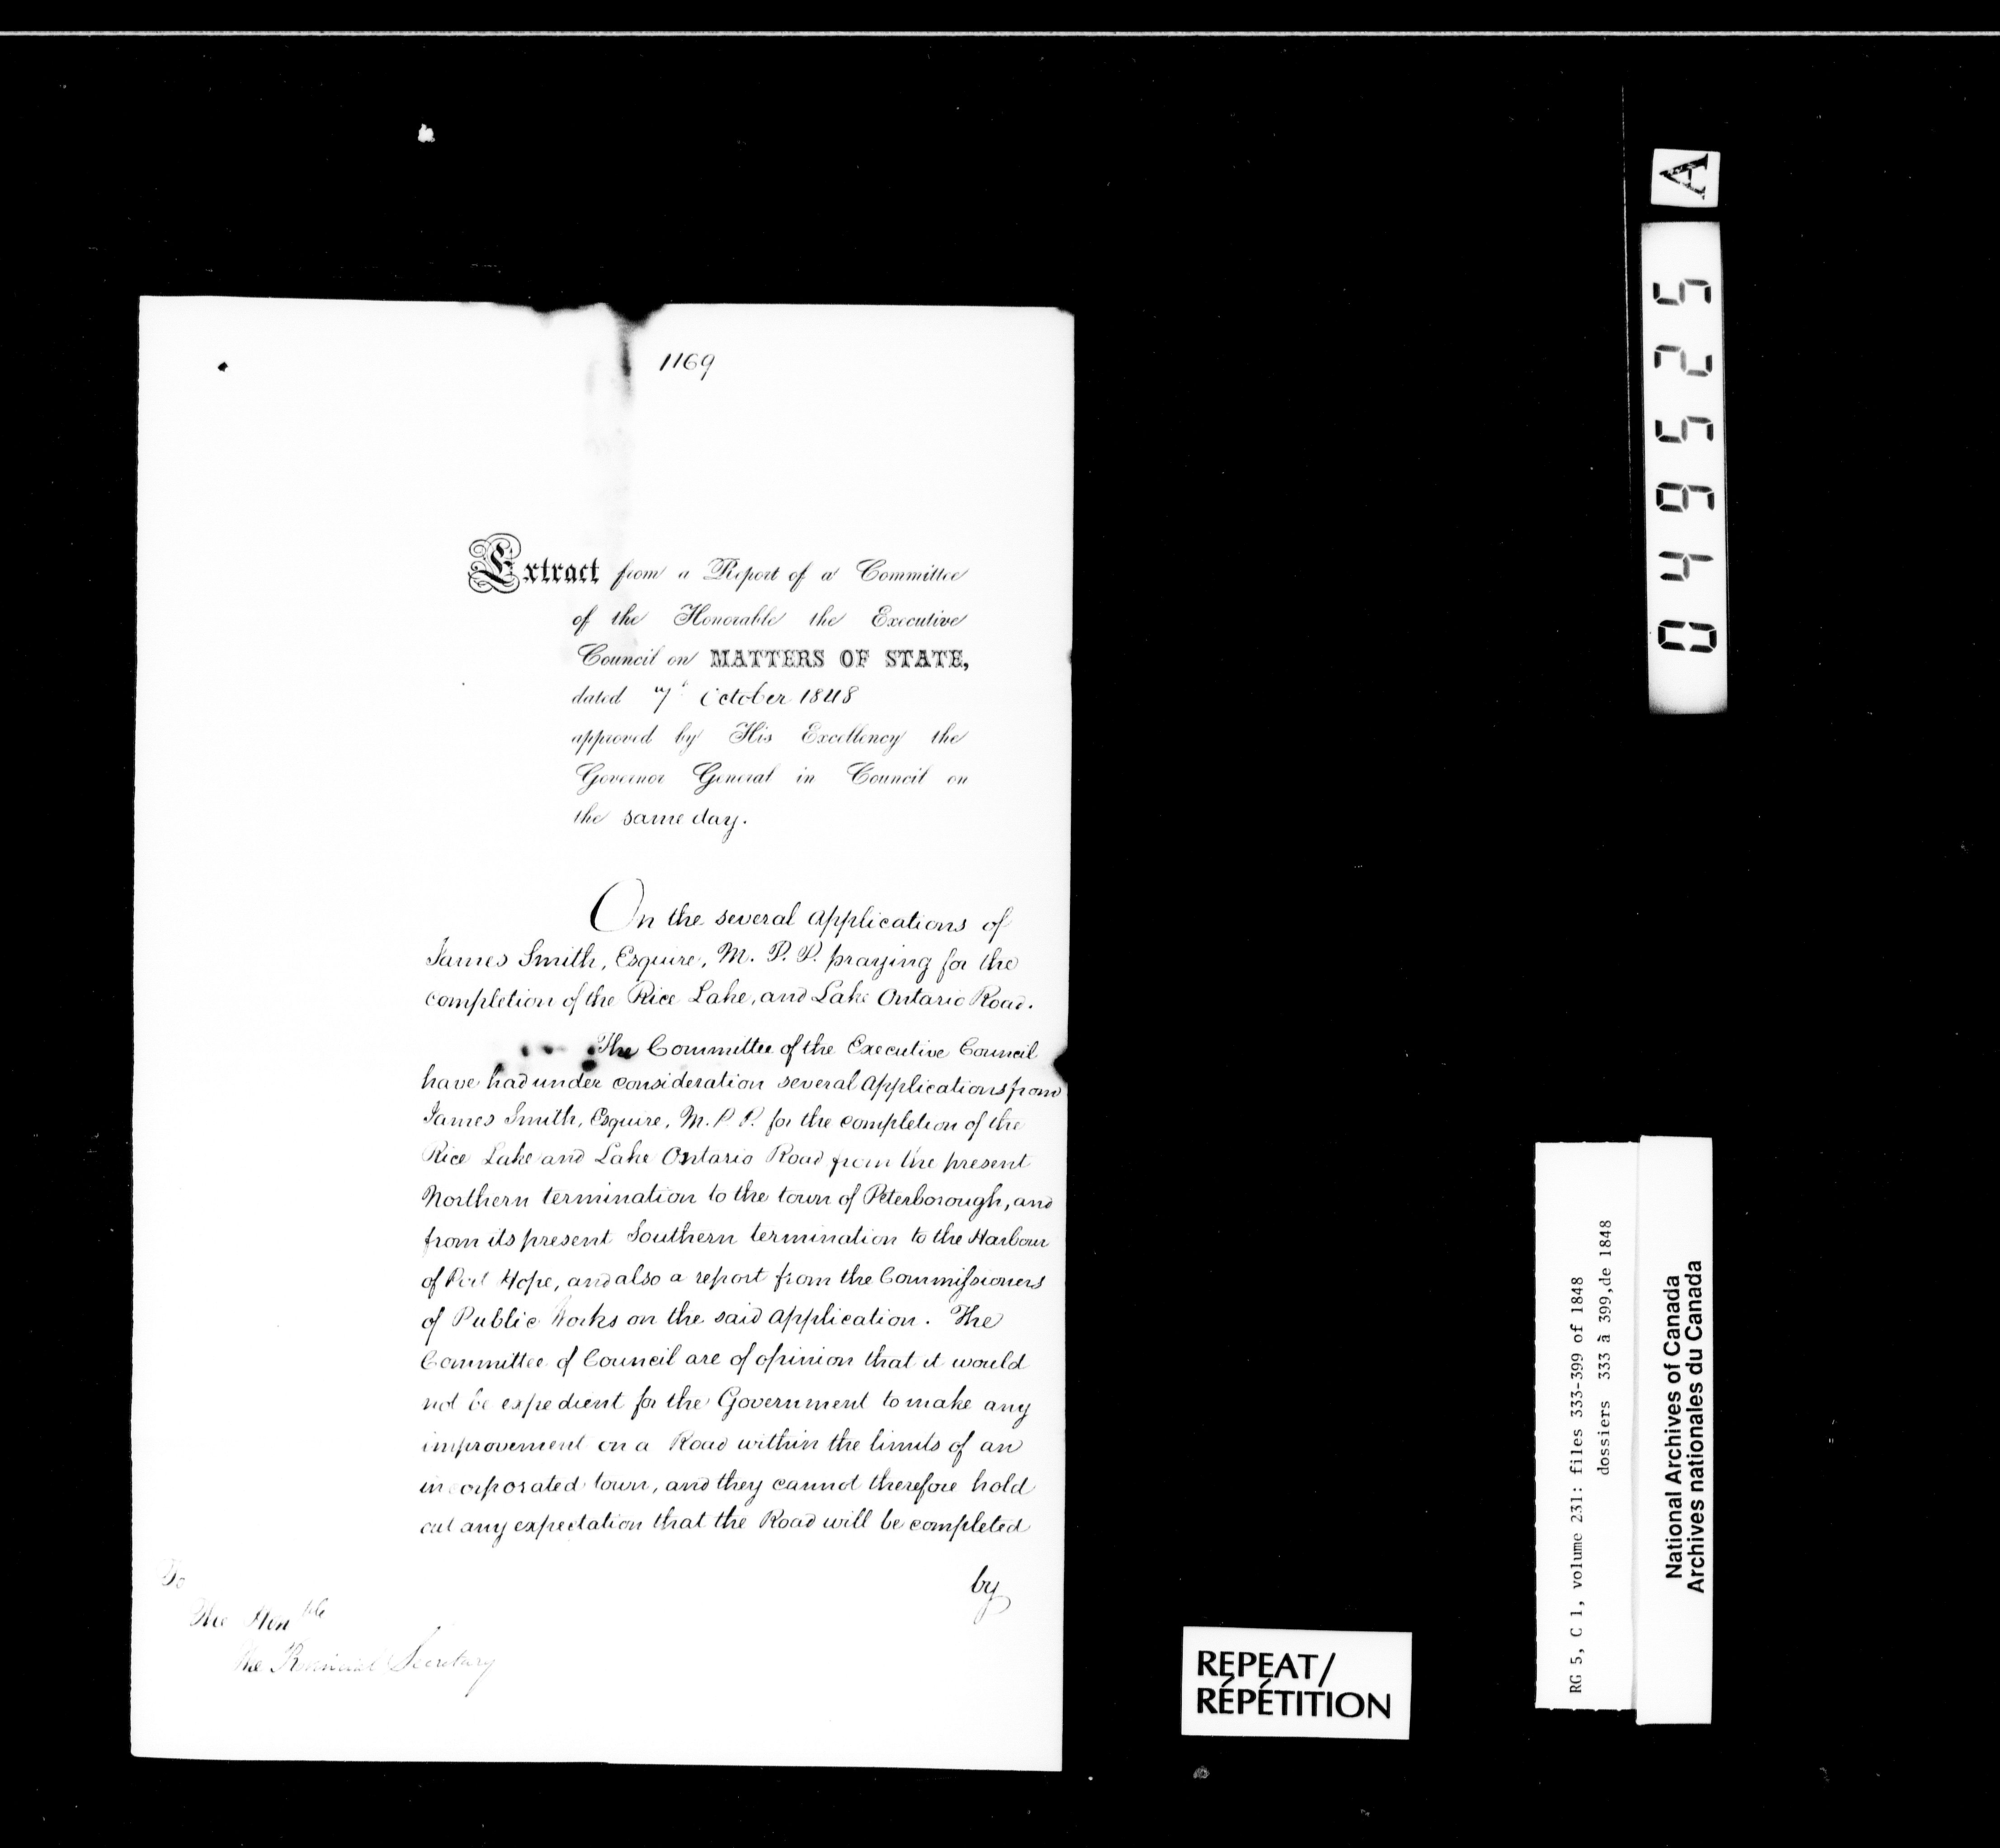 1169
Extract from a Report of a Committee
of the Honorable the Executive
Council on MATTERS OF STATE,
dated 7th October 1848
approved by His Excellency the
Governor General in Council on
the same day.
On the several applications of
James Smith, Esquire, M. P. P. praying for the
completion of the Rice Lake, and Lake Ontario Road.
The Committee of the Executive Council
have had under consideration several applications from
James Smith, Esquire, M. P. P. for the completion of the
Rice Lake and Lake Ontario Road from the present
Northern termination to the town of Peterborough, and
from its present Southern termination to the Harbour
of Port Hope, and also a report from the Commissioners
of Public Works on the said application. The
Committee of Council are of opinion that it would
not be expedient for the Government to make any
improvement on a Road within the limits of an
incorporated town, and they cannot therefore hold
out any expectation that the Road will be completed
by
To
The Honble
The Provincial Secretary
A
049525
RG 5, C 1, volume 231: files 333-399 of 1848
dossiers 333 à 399, de 1848
National Archives of Canada
Archives nationales du Canada
REPEAT/
RÉPÉTITION